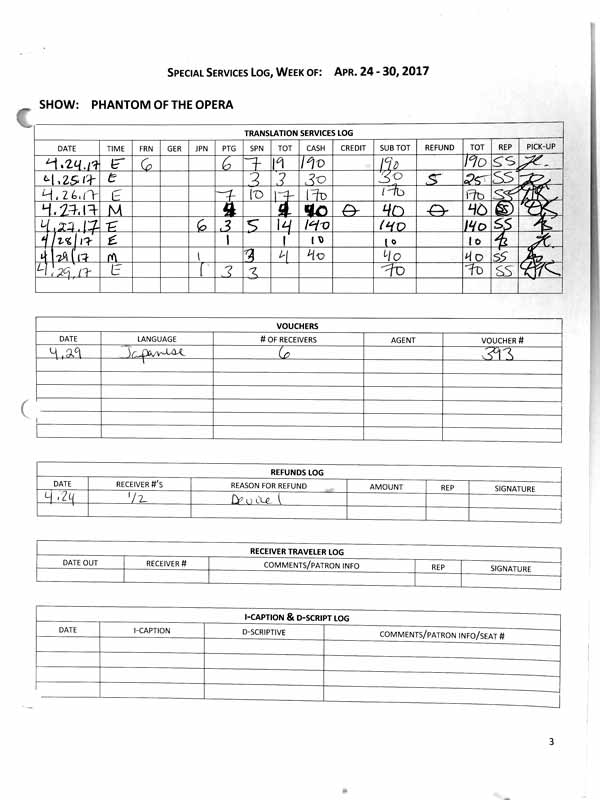 SPECIAL SERVICES LOG, WEEK OF: APR. 24 - 30, 2017
SHOW: PHANTOM OF THE OPERA
TRANSLATION SERVICES LOG
DATE TIME FRN GER JPN PTG SPN TOT CASH CREDIT SUB TOT REFUND TOT REP PICK-UP
4.24.17 E 6 6 7 19 190 190 190 SS
4.25.17 E 3 3 30 30 5 25 SS
4.26.17 E 7 10 17 170 170 170 SS
4.27.17 M 4 4 40 0 40 0 40 SS
4.27.17 E 6 3 5 14 140 140 140 SS
4/28/17 E 1 1 10 10 10
4/29/17 M 1 3 4 40 40 40 SS
4.29.17 E 1 3 3 70 70 SS
VOUCHERS
DATE LANGUAGE # OF RECEIVERS AGENT VOUCHER #
4.29 Japanese 6 393
REFUNDS LOG
DATE RECEIVER #'S REASON FOR REFUND AMOUNT REP SIGNATURE
4.24 1/2
RECEIVER TRAVELER LOG
DATE OUT RECEIVER # COMMENTS/PATRON INFO REP SIGNATURE
I-CAPTION & D-SCRIPT LOG
DATE I-CAPTION D-SCRIPTIVE COMMENTS/PATRON INFO/SEAT #
3